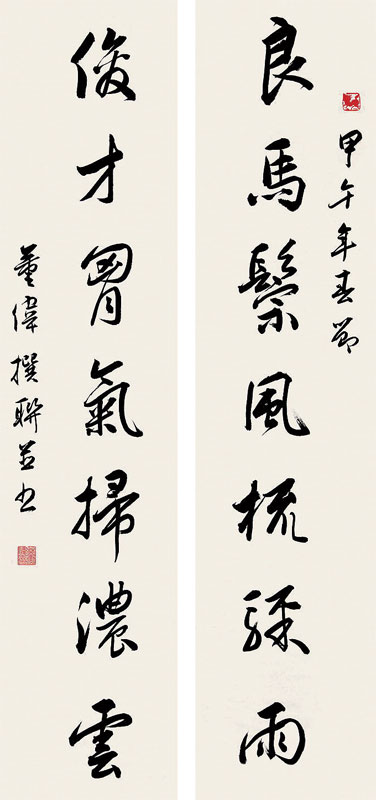 甲午年春節
良馬鬃風梳驟雨
俊才胷氣掃濃雲
董偉撰聯並書